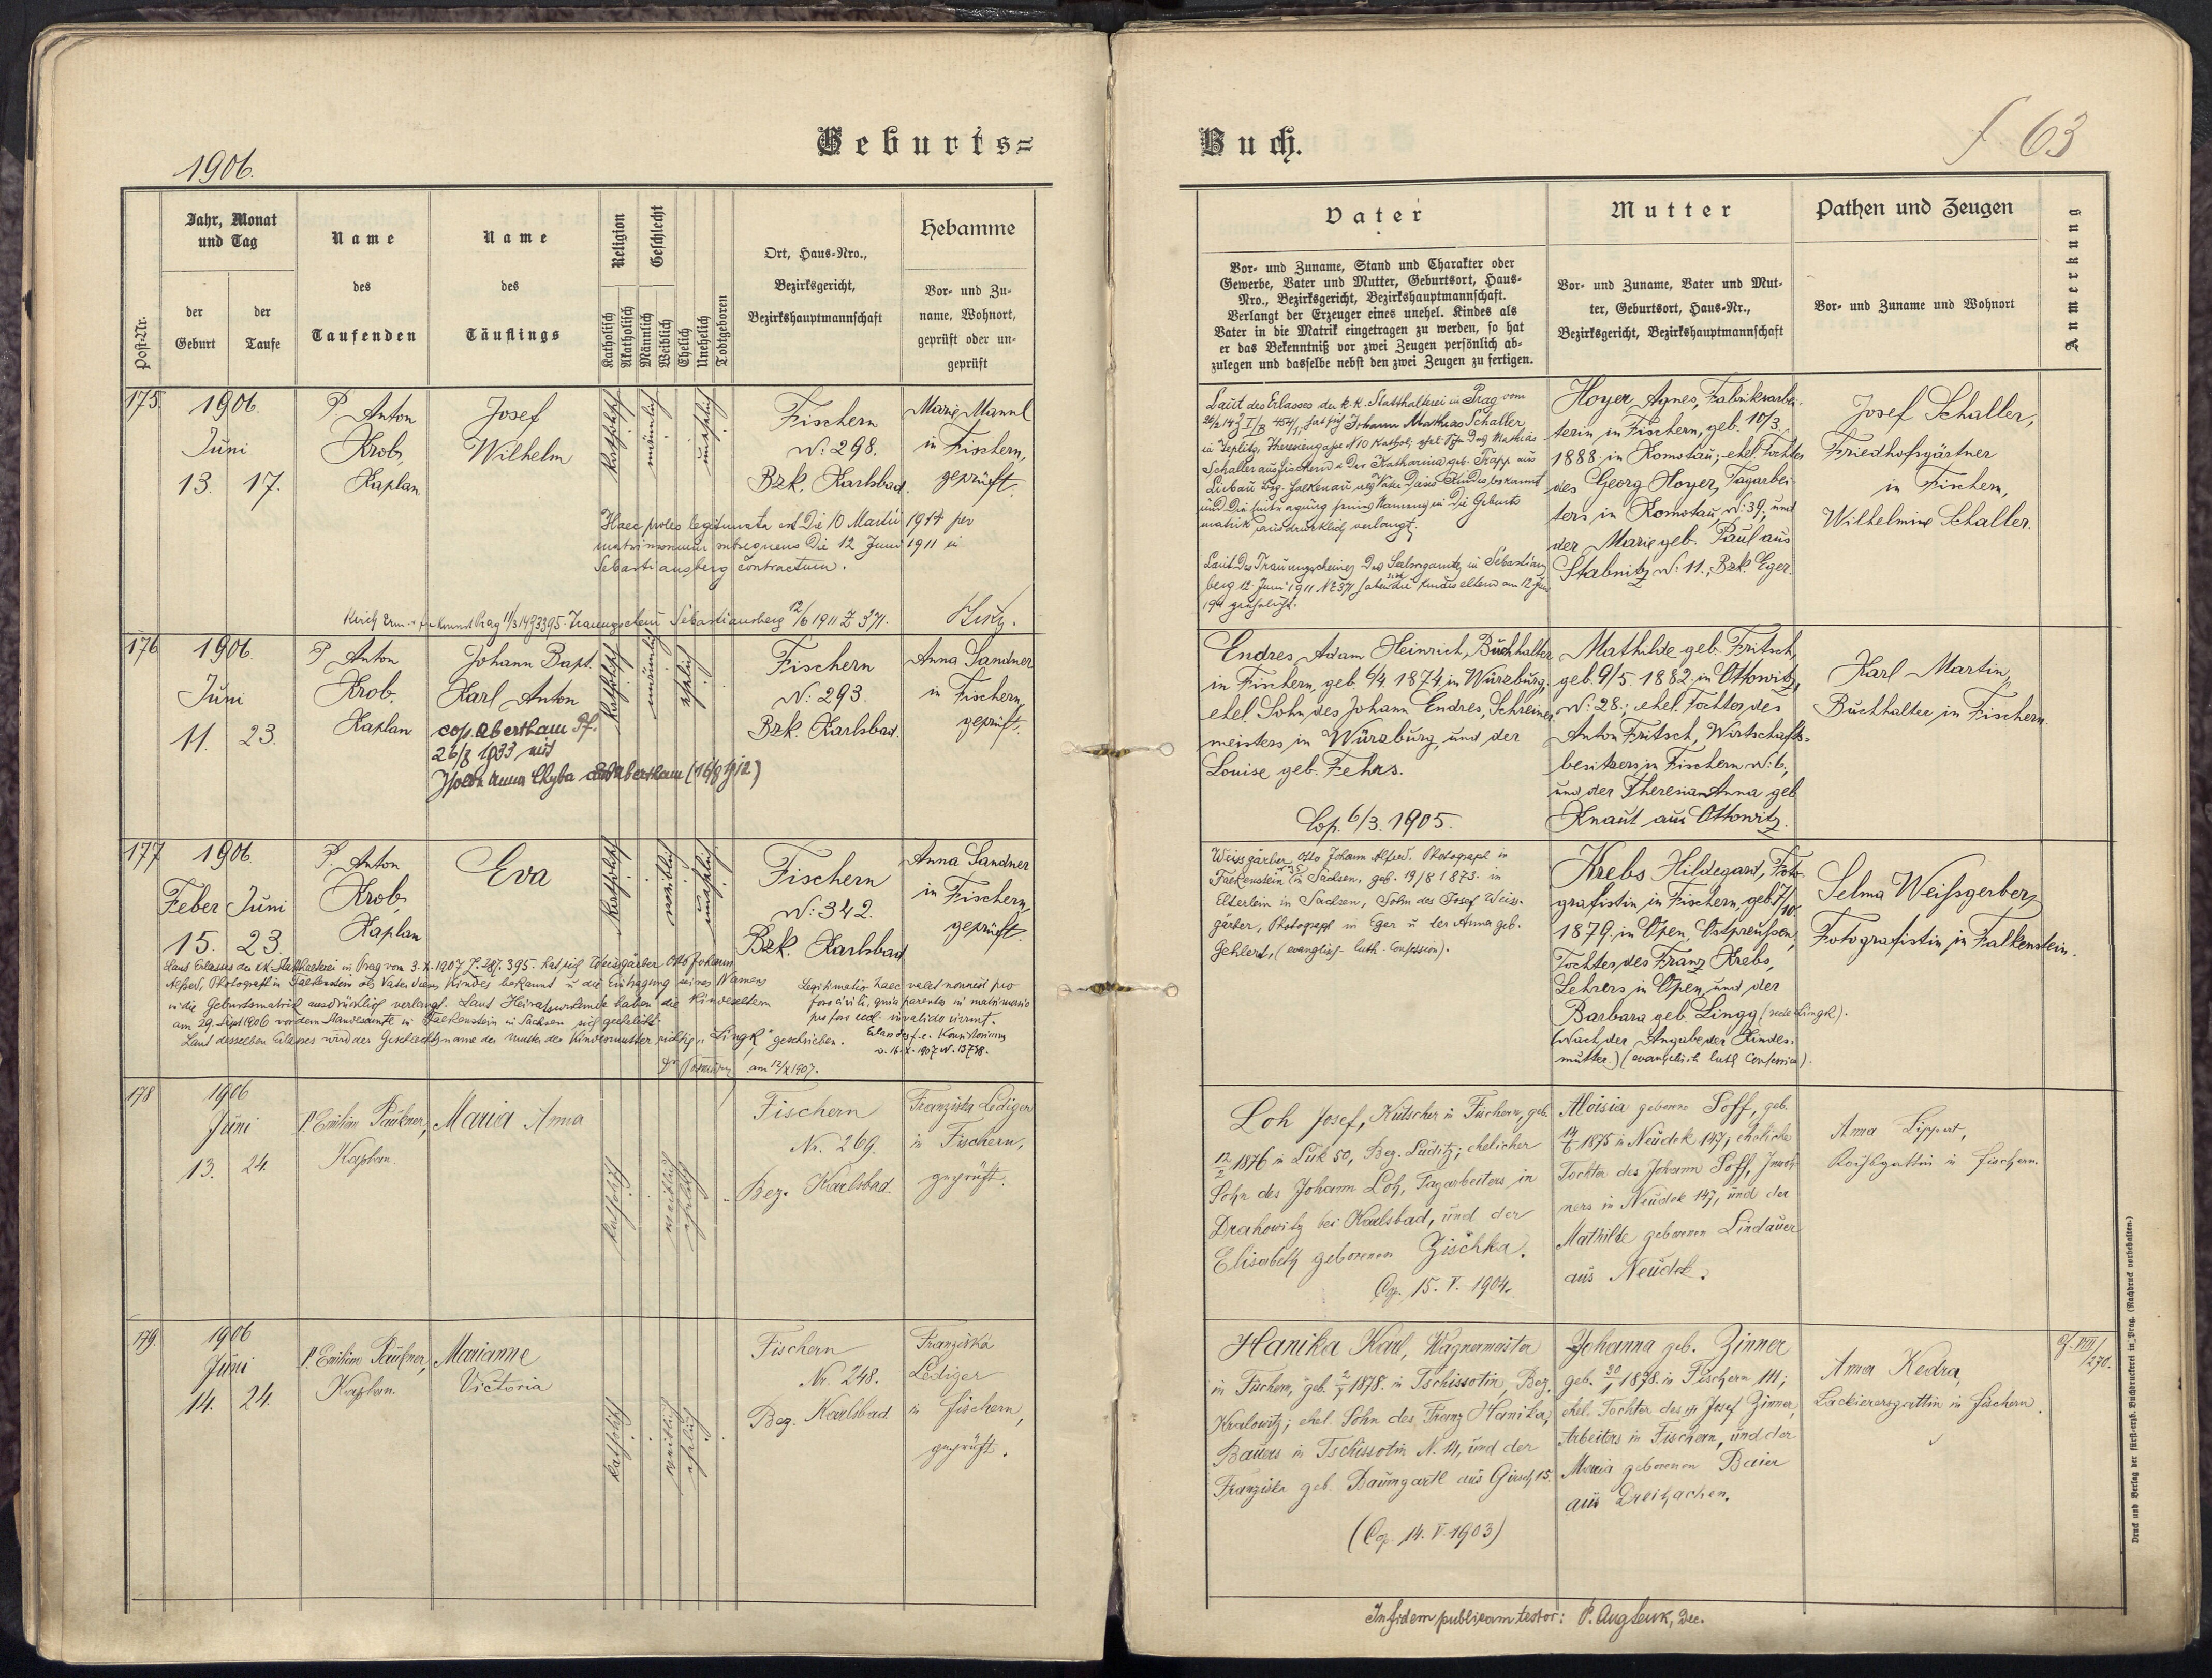 Geburts=
1906.
Post-Nr.
Jahr, Monat
und Tag
der
Geburt
der
Taufe
Name
des
Taufenden
Name
des
Täuflings
Religion
Katholisch
Akatholisch
Geschlecht
Männlich
Weiblich
Ehelich
Unehelich
Todtgeboren
Ort, Haus-Nro.,
Bezirksgericht,
Bezirkshauptmannschaft
Hebamme
Vor- und Zu-
name, Wohnort,
geprüft oder un-
geprüft
175.
1906.
Juni
13. 17.
P. Anton
Krob,
Kaplan
Josef
Wilhelm
katholisch
männlich
unehelich
Fischern
N: 298.
Bzk. Karlsbad.
Marie Mannl
in Fischern,
geprüft.
Haec proles legitimata est die 10 Martii 1914 per
matrimonium subsequens die 12 Juni 1911 in
Sebastiansberg contractum.
Prag 11/3 14 Z 3395. Trauungsschein Sebastiansberg 12/6 1911 Z 371.
176
1906.
Juni
11. 23.
P. Anton
Krob,
Kaplan
Johann Bapt.
Karl Anton
cop. Abertham
26/8 1933 mit
Anna Chyba aus Abertham (16/9 1912)
katholisch
männlich
ehelich
Fischern
N: 293.
Bzk. Karlsbad.
Anna Sandner
in Fischern,
geprüft.
177
1906.
Feber Juni
15. 23.
P. Anton
Krob,
Kaplan
Eva
katholisch
weiblich
unehelich
Fischern
N: 342.
Bzk. Karlsbad
Anna Sandner
in Fischern,
geprüft.
Laut Erlasses der k.k. Statthalterei in Prag vom 3.X.1907 395. hat sich Weissgärber Otto Johann
Alfred, Photograf in Falkenstein als Vater dieses Kindes bekannt u. die Eintragung seines Namens
in die Geburtsmatrik ausdrücklich verlangt. Laut Heiratsurkunde haben die Kindeseltern
am 29. Sept 1906 vor dem Standesamte in Falkenstein in Sachsen sich geehelicht.
Laut desselben Erlasses wird der Geschlechtsname der Mutter der Kindesmutter richtig "Lingk" geschrieben.
Legitimatio haec valet nonnisi pro
foro civili, quia parentes in matrimonio
pro foro eccl. invalido vivunt.
Erl. des f.e. Konsistorium
am 12/X 1907.
178
1906
Juni
13. 24.
P. Emilian Paukner,
Kaplan.
Maria Anna
katholisch
weiblich
ehelich
Fischern
Nr. 269.
Bez. Karlsbad.
Franziska Lediger
in Fischern,
geprüft.
179.
1906
Juni
14. 24.
P. Emilian Paukner,
Kaplan.
Marianne
Victoria
katholisch
weiblich
ehelich
Fischern
Nr. 248.
Bez. Karlsbad
Franziska
Lediger
in Fischern,
geprüft.
Buch.
f. 63
Vater
Vor- und Zuname, Stand und Charakter oder
Gewerbe, Vater und Mutter, Geburtsort, Haus-
Nro., Bezirksgericht, Bezirkshauptmannschaft.
Verlangt der Erzeuger eines unehel. Kindes als
Vater in die Matrik eingetragen zu werden, so hat
er das Bekenntniß vor zwei Zeugen persönlich ab-
zulegen und dasselbe nebst den zwei Zeugen zu fertigen.
Mutter
Vor- und Zuname, Vater und Mut-
ter, Geburtsort, Haus-Nr.,
Bezirksgericht, Bezirkshauptmannschaft
Pathen und Zeugen
Vor- und Zuname und Wohnort
Anmerkung
Laut des Erlasses der k.k. Statthalterei in Prag vom
hat sich Johann Mathias Schaller
in Teplitz, Theresiengasse N 10 kathol. ehel. Sohn des Mathias
Schaller aus Fischern u. der Katharina geb. Trapp aus
Liebau Bzg. Falkenau als Vater dieses Kindes bekannt
und die Eintragung seines Namens in die Geburts
matrik ausdrücklich verlangt.
Laut des Trauungsscheines des in Sebastians
berg 12 Juni 1911 N 371 haben die Kindeseltern am 12 Juni
1911 geehelicht.
Hoyer Agnes, Fabriksarbei-
terin in Fischern, geb. 10/3.
1888 in Komotau; ehel. Tochter
des Georg Hoyer, Tagarbei-
ters in Komotau, N: 39, und
der Marie geb. Paul aus
Stabnitz N: 11., Bzk. Eger.
Josef Schaller,
Friedhofsgärtner
in Fischern,
Wilhelmine Schaller.
Endres Adam Heinrich, Buchhalter
in Fischern, geb. 6/4. 1874 in Würzburg,
ehel. Sohn des Johann Endres, Schreiner-
meisters in Würzburg, und der
Louise geb. Fehrs.
Cop. 6/3. 1905.
Mathilde geb. Fritsch,
geb. 9/5. 1882 in Ottowitz,
N: 28.; ehel. Tochter des
Anton Fritsch, Wirtschafts-
besitzers in Fischern N: 6,
und der Theresia Anna geb.
Knaut aus Ottowitz.
Karl Martin,
Buchhalter in Fischern.
Weissgärber Otto Johann Alfred. Photograph in
Falkenstein in Sachsen, geb. 19/8 1873. in
Elterlein in Sachsen, Sohn des Josef Weiss-
gärber, Photograph in Eger u der Anna geb.
Gehlert, (evanglisch luth. Confession).
Krebs Hildegard, Foto-
grafistin in Fischern, geb. 7/10.
1879. in Open, Ostpreußen,
Tochter des Franz Krebs,
Lehrers in Open, und der
Barbara geb. Lingg (recte Lingk).
(Nach der Angabe der Kindes-
mutter.) (evangelisch luth Confession).
Selma Weißgerber,
Fotografistin in Falkenstein.
Loh Josef, Kutscher in Fischern, geb.
12/2 1876 in Luk 50, Bez. Luditz; ehelicher
Sohn des Johann Loh, Tagarbeiters in
Drahowitz bei Karlsbad, und der
Elisabeth geborenen Zischka.
Cop. 15. V. 1904.
Aloisia geborene Soff, geb.
14/6 1875 in Neudek 147; eheliche
Tochter des Johann Soff, Inwoh-
ners in Neudek 147, und der
Mathilde geborenen Lindauer
aus Neudek.
Anna Lippert,
in Fischern.
Hanika Karl, Wagnermeister
in Fischern, geb. 1878. in Tschissotin, Bez.
Kralowitz; ehel. Sohn des Franz Hanika,
Bauers in Tschissotin N. 14, und der
Franziska geb. Baumgartl aus Girsch 15.
(Cop. 14. V. 1903)
Johanna geb. Zinner
geb. 30/1 1878. in Fischern 111;
ehel. Tochter des Josef Zinner,
Arbeiters in Fischern, und der
Maria geborenen Baier
aus Dreihacken.
Anna Kedra,
Lackierersgattin in Fischern.
VIII/270.
In fidem publicam testor: P. Aug Dec.
Druck und Verlag der fürst-erzb. Buchdruckerei in Prag. (Nachdruck vorbehalten.)